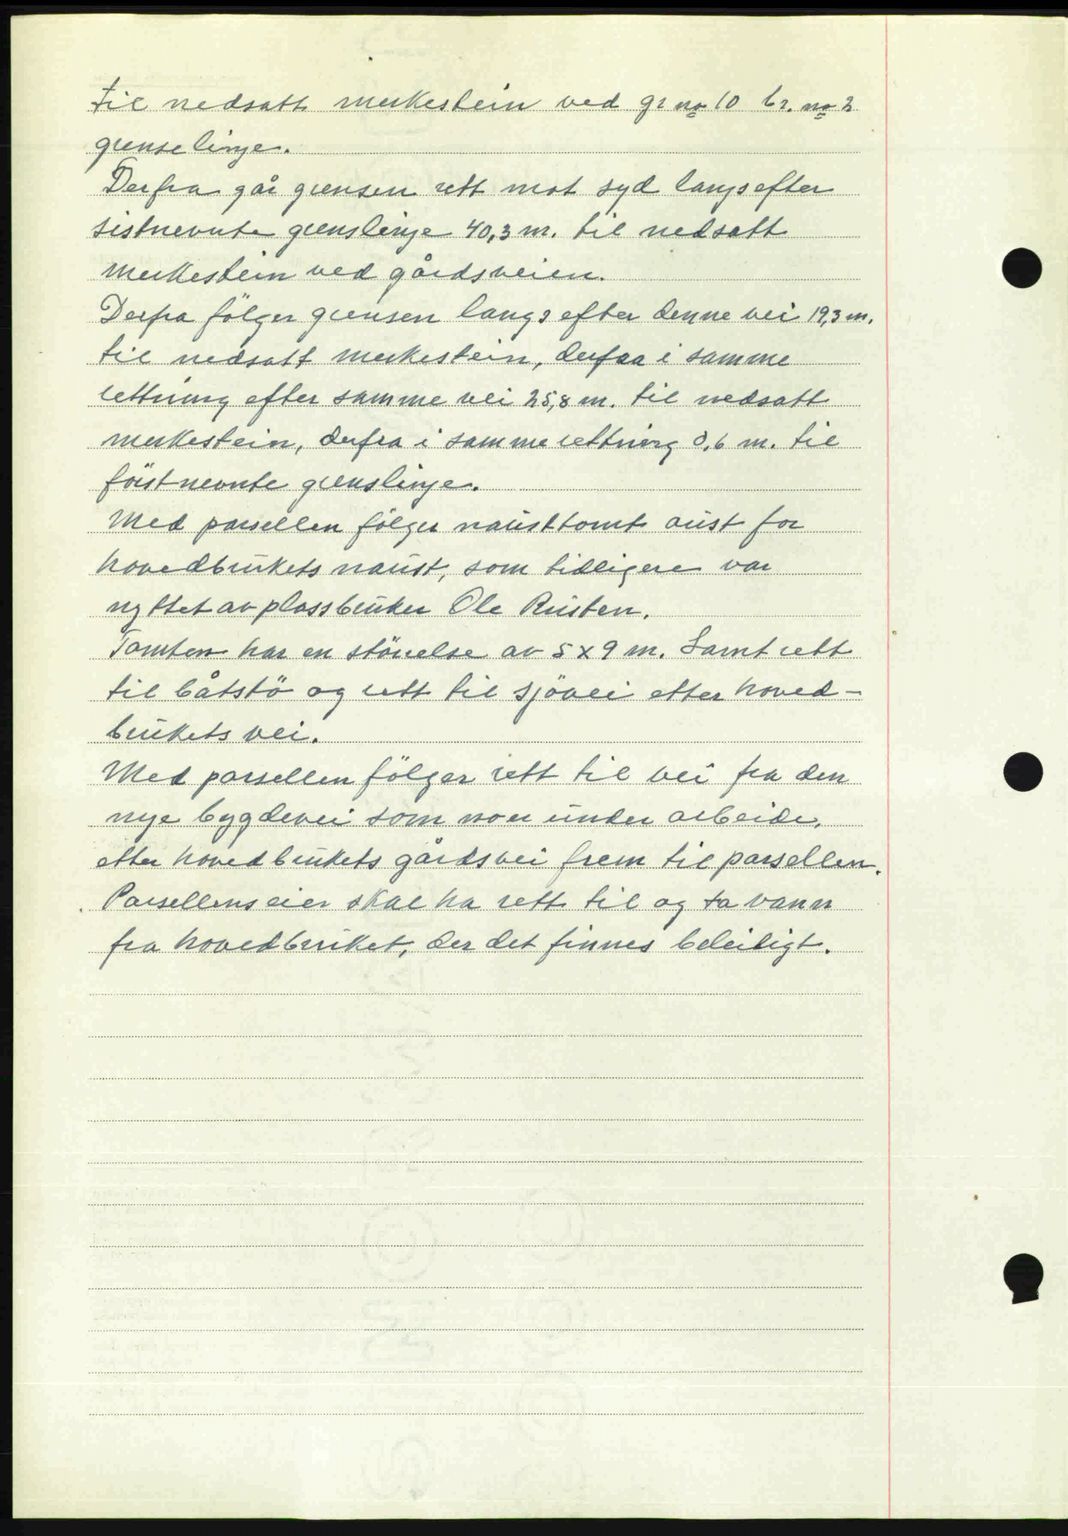 til nedsatt merkestein ved gr no 10 br. no 2
grenselinje.
Derfra går grensen rett mot syd langsefter
sistnevnte grenslinje 40,3 m. til nedsatt
merkestein ved gårdsveien.
Derfra följer grensen langs efter denne vei 19,3 m.
til nedsatt merkestein, derfra i samme
rettning efter samme vei 25,8 m. til nedsatt
merkestein, derfra i samme rettning 0,6 m. til
förstnevnte grenslinje.
Med parsellen fölger nausttomt aust for
hovedbrukets naust, som tidligere var
nyttet av plassbruker Ole Rusten.
Tomten har en störrelse av 5 x 9 m. Samt rett
til båtstö og rett til sjövei etter hoved-
brukets vei.
Med parsellen fölger rett til vei fra den
nye bygdevei som no er under arbeide,
etter hovedbrukets gårdsvei frem til parsellen.
Parsellens eier skal ha rett til og ta vann
fra hovedbruket, der det finnes beleiligt.